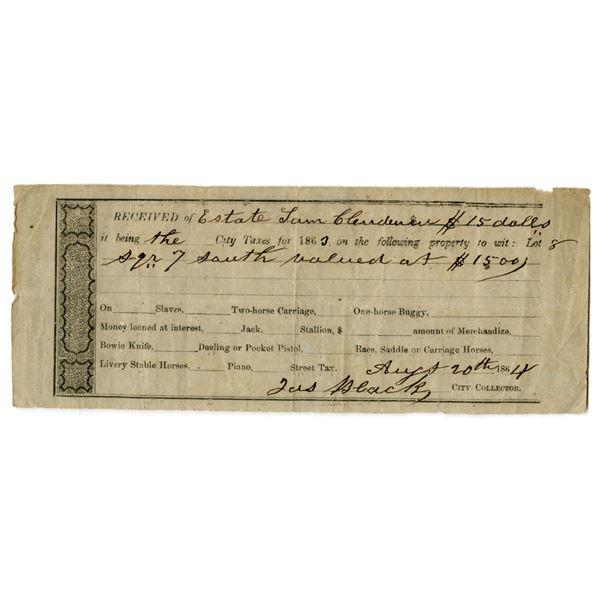 RECEIVED of Estate Sam Clendenin $15 dolls
it being the City Taxes for 1863, on the following property to wit: Lot 8
Sqr 7 south valued at $1500
On Slaves, Two-horse Carriage, One-horse Buggy,
Money loaned at interest, Jack, Stallion, $ amount of Merchandize,
Bowie Knife, Dueling or Pocket Pistol, Race, Saddle or Carriage Horses,
Livery Stable Horses. Piano, Street Tax. Augt 20th 1864
Jas Black, CITY COLLECTOR.